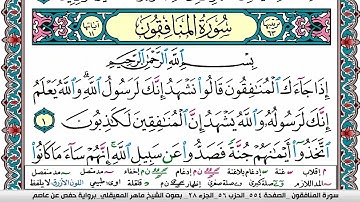 سُورَةُ المُنَافِقُونَ
بِسْمِ اللَّهِ الرَّحْمَٰنِ الرَّحِيمِ
إِذَا جَاءَكَ الْمُنَافِقُونَ قَالُوا نَشْهَدُ إِنَّكَ لَرَسُولُ اللَّهِ وَاللَّهُ يَعْلَمُ
إِنَّكَ لَرَسُولُهُ وَاللَّهُ يَشْهَدُ إِنَّ الْمُنَافِقِينَ لَكَاذِبُونَ ١
اتَّخَذُوا أَيْمَانَهُمْ جُنَّةً فَصَدُّوا عَن سَبِيلِ اللَّهِ إِنَّهُمْ سَاءَ مَا كَانُوا
سورة المنافقون _ الصفحة ٥٥٤ الحزب ٥٦ الجزء ٢٨ _ بصوت الشيخ ماهر المعيقلي _ برواية حفص عن عاصم